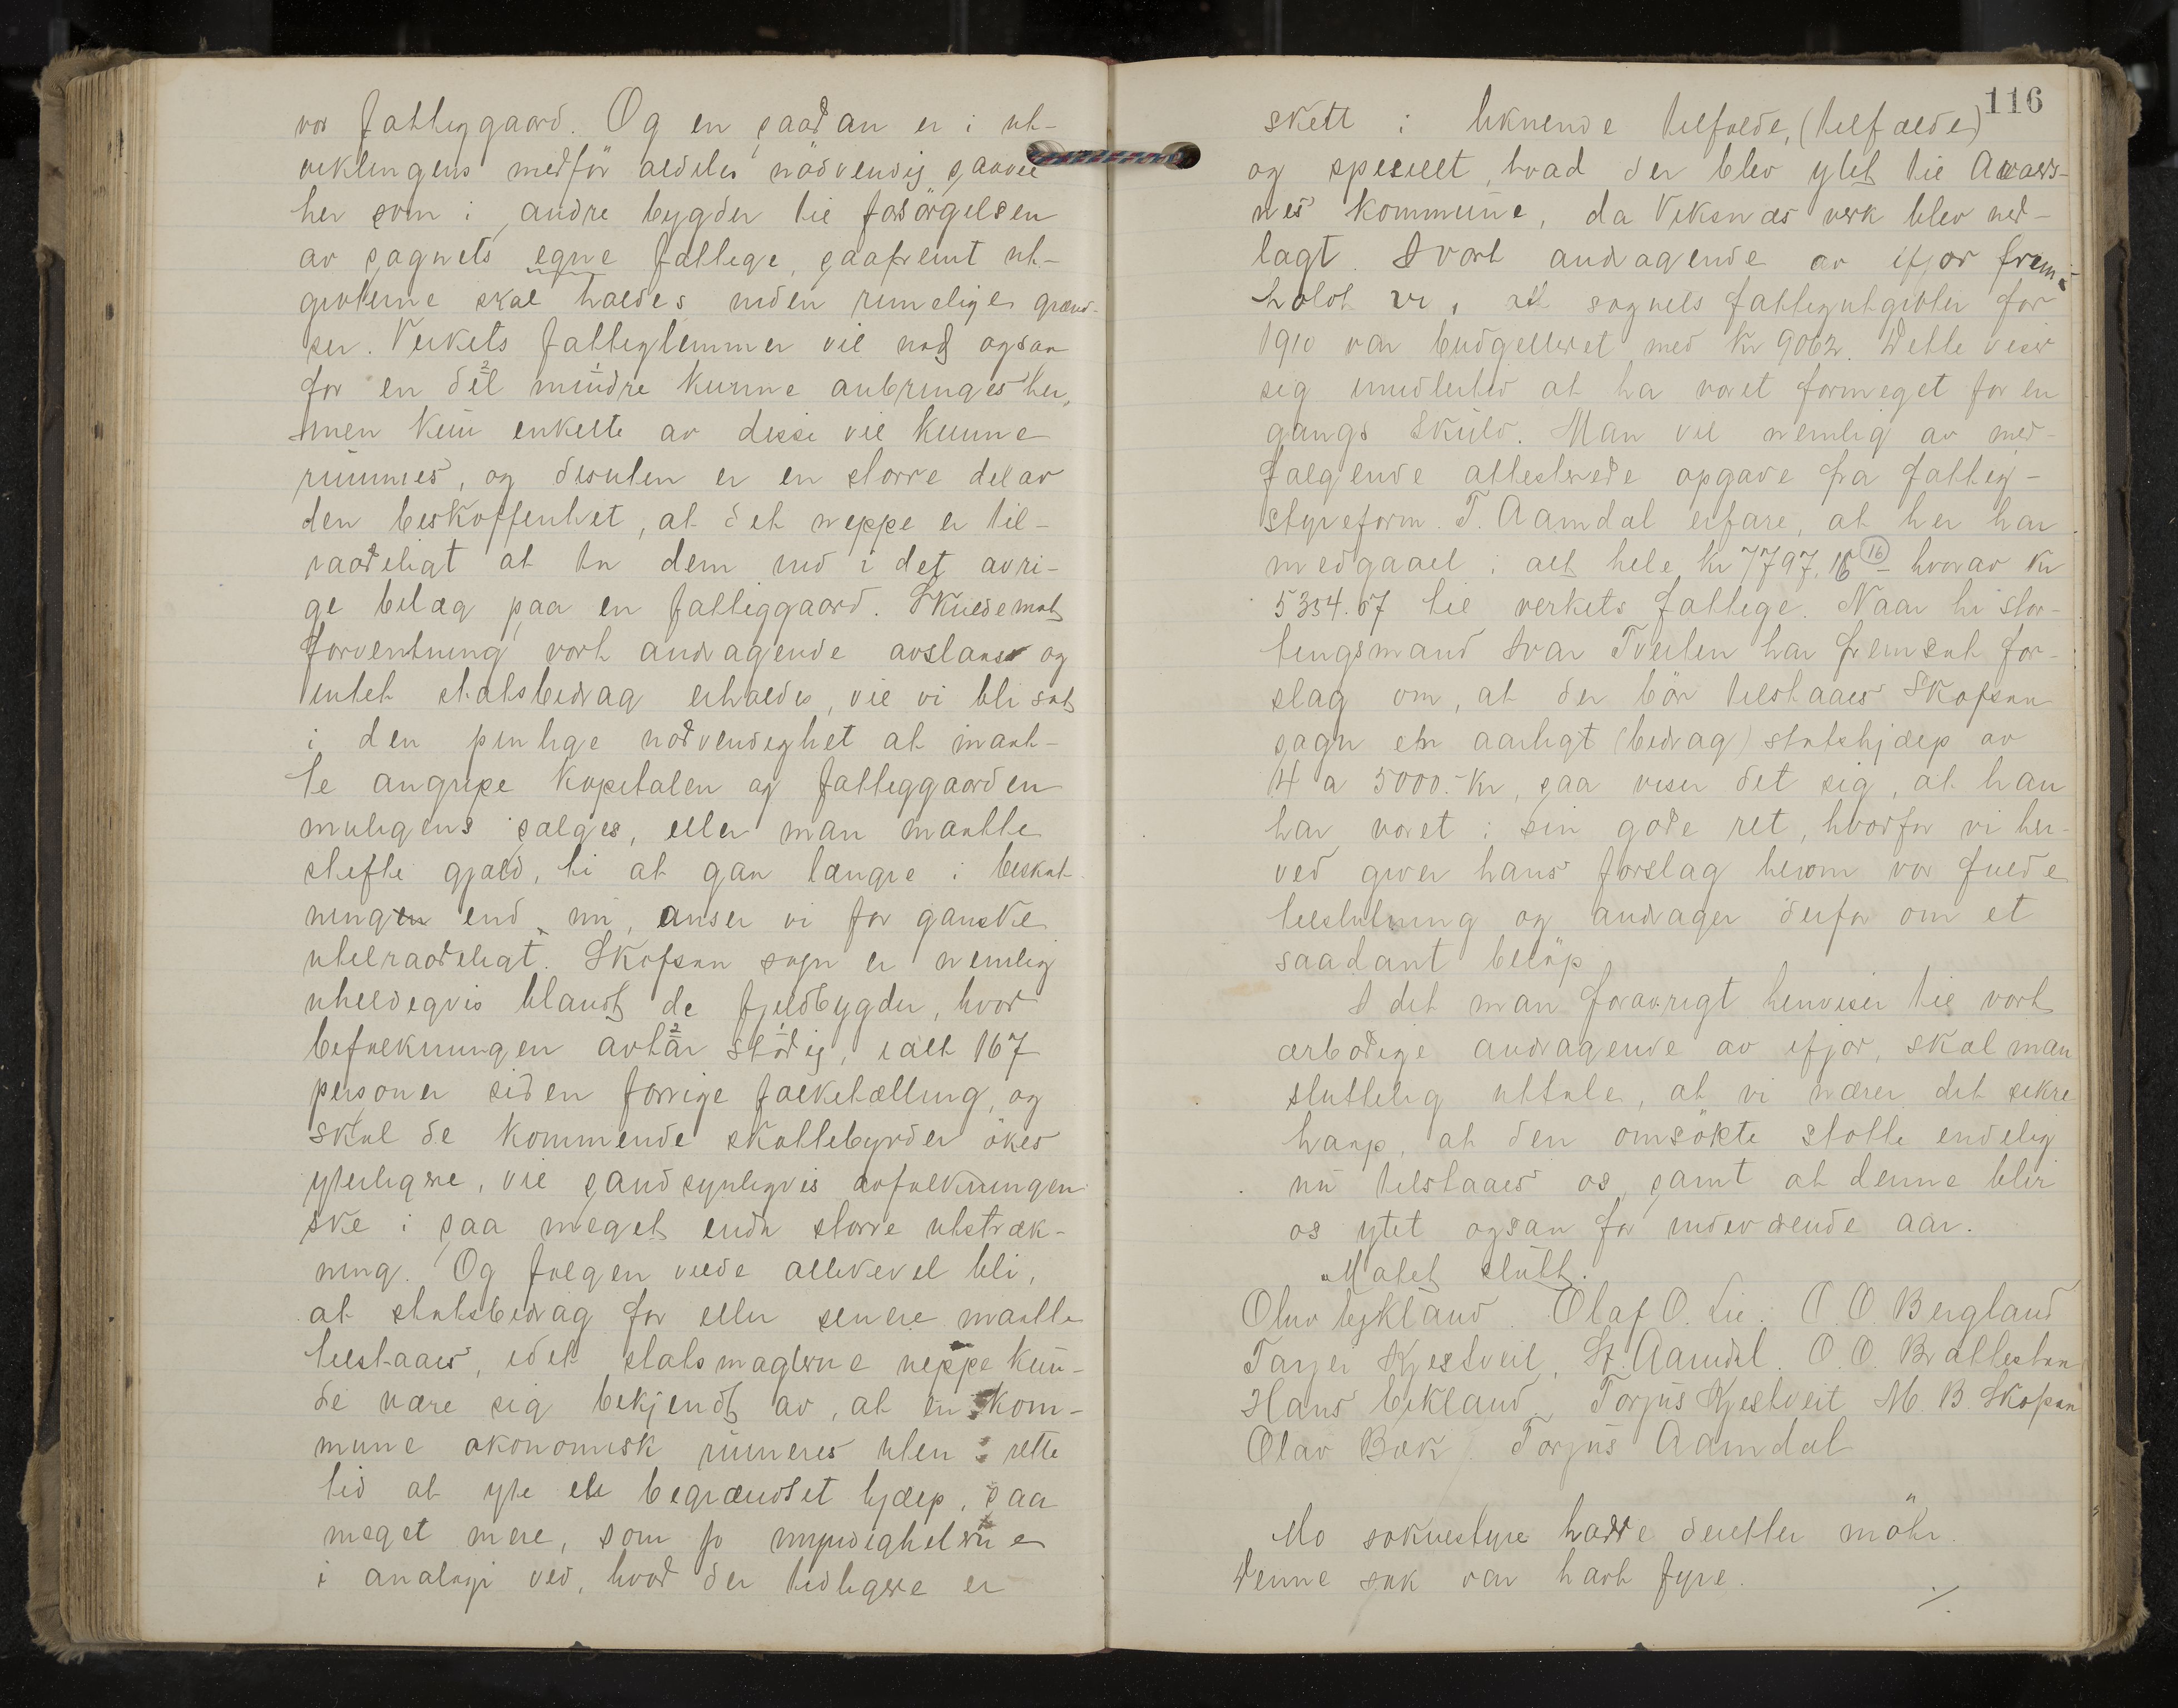 vor fattiggaard. Og en saadan er i ut-
viklingens medför aldeles nödvendig saavel
her som i andre bygder til forsörgelsen
av sognets egne fattige, saafremt ut-
gifterne skal holdes inden rimelige grænd-
ser. Verkets fattiglemmer vil nok ogsaa
for en del mindre kunne anbringes her,
men kun enkelte av disse vil kunne
rummes, og desuten er en storre del av
den beskaffenhet, at det neppe er til-
raadeligt at ta dem ind i det övri-
ge belæg paa en fattiggaard. Skulde mot
forventning vort andragende avslaaes og
intet statsbidrag erholdes, vil vi bli sat
i den pinlige nödvendighet at maat-
te angripe kapitalen og fattiggaarden
muligens sælges, eller man maatte
stifte gjæld, ti at gaa længre i beskat-
ningen end nu, anser vi for ganske
utilraadeligt. Skafsaa sogn er nemlig
uheldigvis blandt de fjeldbygder, hvor
befolkningen avtar stödig, i alt 167
personer siden forrige folketælling, og
skal de kommende skattebyrder ökes
yterligere, vil sandsynligvis avfolkningen
ske i saa meget enda storre utstræk-
ning. Og folgen vilde allikevel bli,
at statsbidrag for eller senere maatte
tilstaaes, idet statsmagterne neppe kun-
de være sig bekjendt av, at en kom-
mune okonomisk ruineres uten i rette
tid at yte et begrændset hjælp, saa
meget mere, som jo myndigheterne
i analogi ved, hvad der tidligere er
116
skett i liknende tilfælde, (tilfælde)
og specielt, hvad der blev ytet til Avaldsnes-
nes kommune, da Viksnæs verk blev ned-
lagt. I vort andragende av ifjor frem-
holdt vi, at sognets fattigutgifter for
1910 var budgettert med kr 9062. Dette viser
sig imidlertid at ha været formeget for en
gangs skuld. Man vil nemlig av med-
følgende attesterede opgave fra fattig-
styreform. T. Aamdal erfare, at her har
medgaaet i alt hele kr 7797.16 16 – hvorav kr
5354.67 til verkets fattige. Naar hr stor-
tingsmand Ivar Tveiten har fremsat for-
slag om, at der bör tilstaaes Skafsaa
sogn en aarligt (bidrag) statshjælp av
4 a 5000.- kr, saa viser det sig, at han
har været i sin gode ret, hvorfor vi her-
ved giver hans forslag herom vor fulde
tilslutning og andrager derfor om et
saadant beløp.
I det man foravrigt henviser til vort
ærbödige andragende av ifjor, skal man
sluttelig uttale, at vi nærer det sikre
haap, at den omsökte stotte endelig
nu tilstaaes os, samt at denne blir
os ytet ogsaa for indeværende aar.
Mötet slutt.
Olav Eikland. Olaf O. Lie. O. O. Bergland
Tarjei Kjestveit, St. Aamdal. O. O. Brattestaa
Hans Eikland. Torjus Kjestveit M. B. Skafsaa
Olav Bæk. Torjus Aamdal
Mo soknestyre hadde deretter möte.
Denne sak var havt fyre.
./.